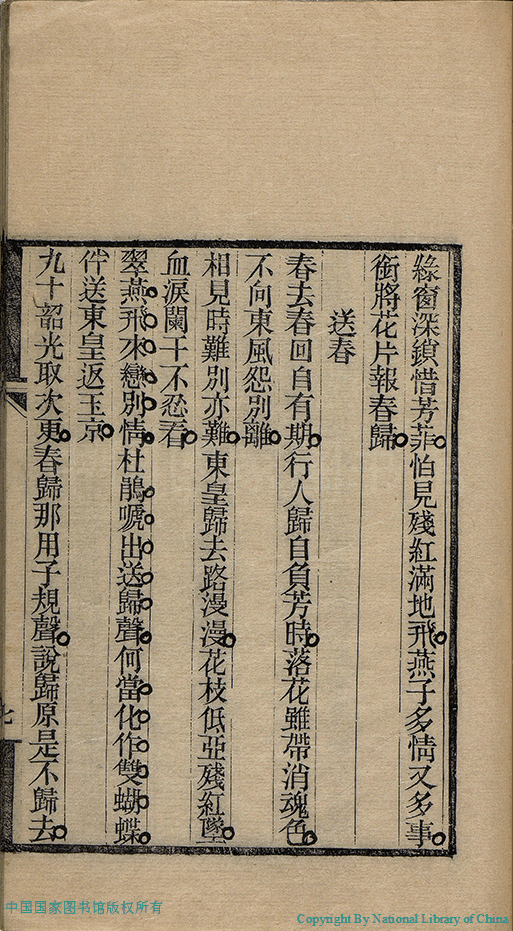 綠窗深鎖惜芳菲怕見殘紅滿地飛燕子多情又多事
銜將花片報春歸
送春
春去春回自有期行人歸自負芳時落花雖帶消魂色
不向東風怨別離
相見時難別亦難東皇歸去路漫漫花枝低亞殘紅墜
血淚闌干不忍看
翠燕飛來戀別情杜鵑嗁出送歸聲何當化作雙蝴蝶
伴送東皇返玉京
九十韶光取次更春歸那用子規聲說歸原是不歸去
七
中国国家图书馆版权所有
Copyright By National Library of China